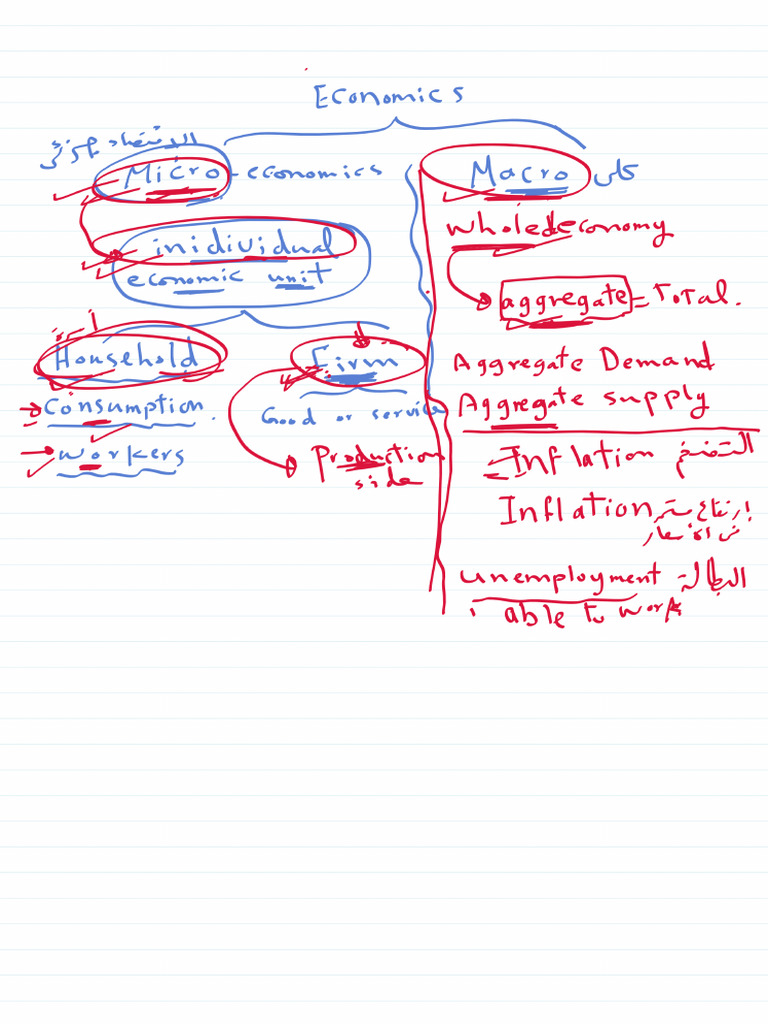 Economics
الاقتصاد الجزئي
Micro-economics
inidividual
economic unit
أسرة
Household
Consumption.
workers
Firm
Good or service
Production
side
Macro كلي
wholedeconomy
aggregate = Total.
Aggregate Demand
Aggregate supply
Inflation التضخم
Inflation ارتفاع مستمر
في الأسعار
unemployment البطالة
able to work